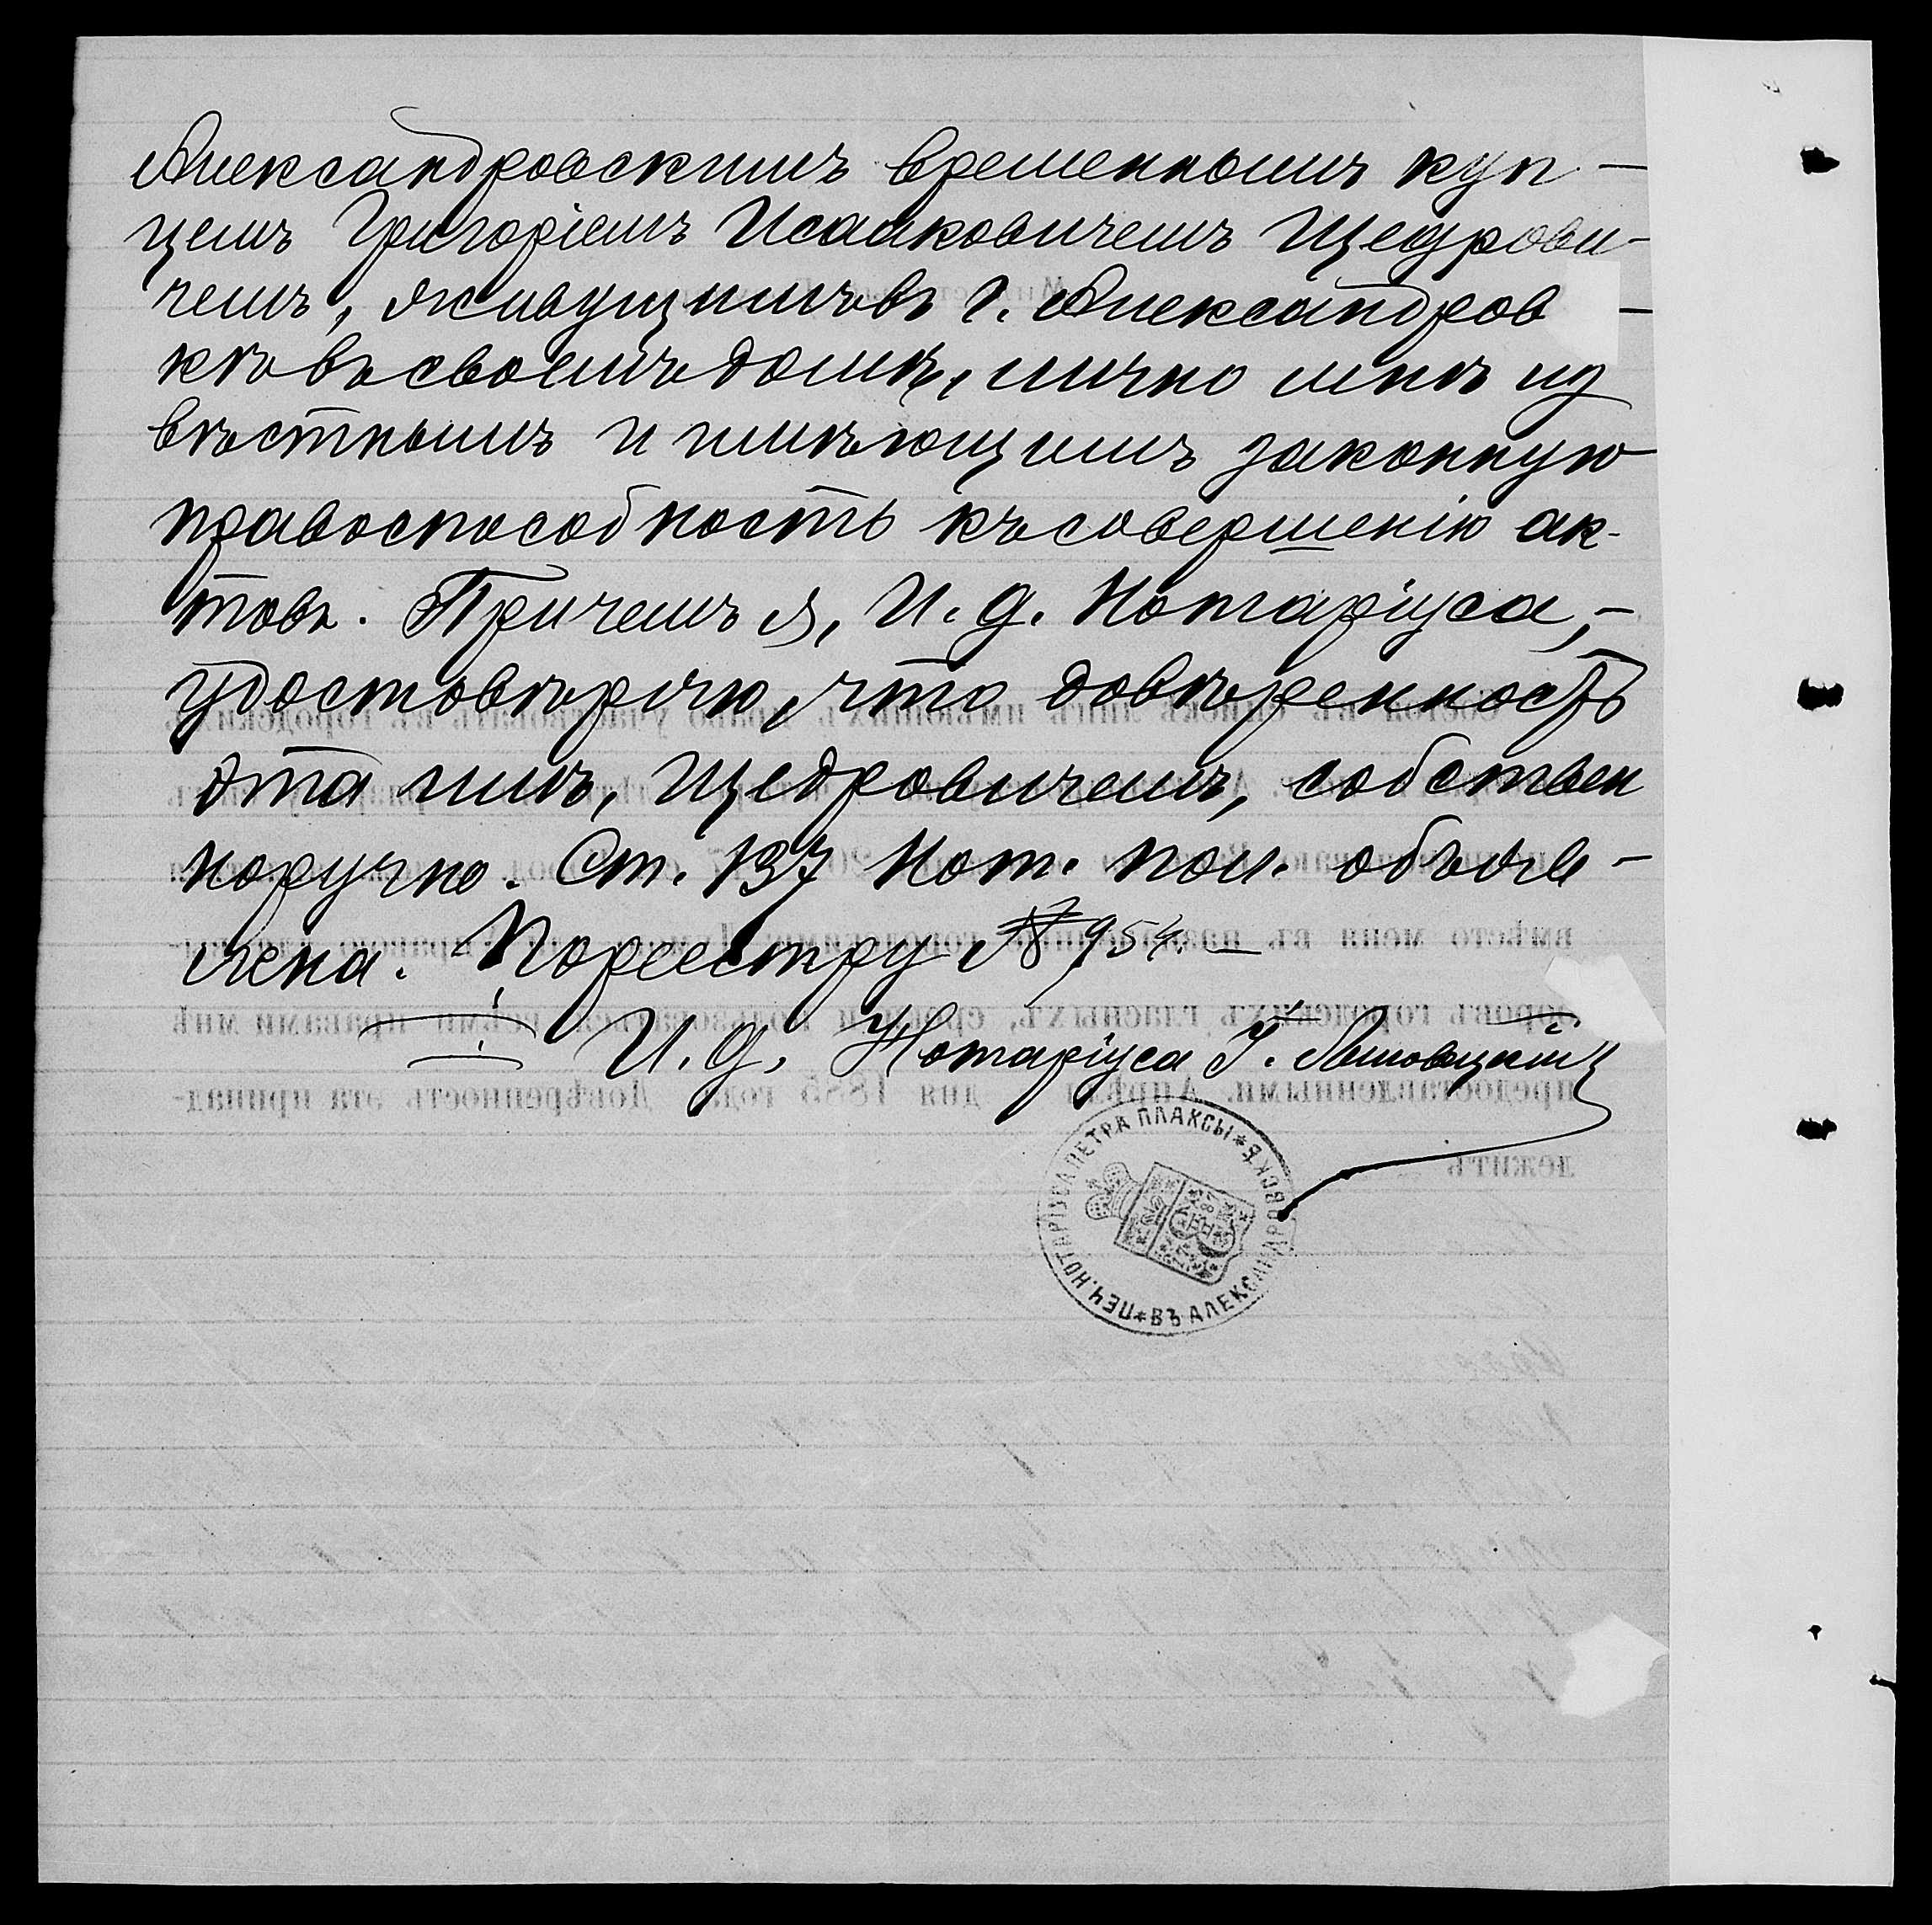 Александровскимъ временнымъ куп-
цемъ Григоріемъ Исааковичемъ Щедрови-
чемъ, живущимъ въ г. Александров-
кѣ въ своемъ домѣ, лично мнѣ из
вѣстнымъ и имѣющимъ законную
правоспособность къ совершенію ак-
товъ. Причемъ я, И. д. Нотаріуса,-
удостовѣряю, что довѣренность
эта имъ, Щедровичемъ, собствен
норучно. Ст. 137 Нот. пол. объяв-
лена. По реестру № 954. —
И. д. Нотаріуса
ПЕЧ. НОТАРІУСА ПЕТРА ПЛАКСЫ * ВЪ АЛЕКСАНДРОВСКѢ *